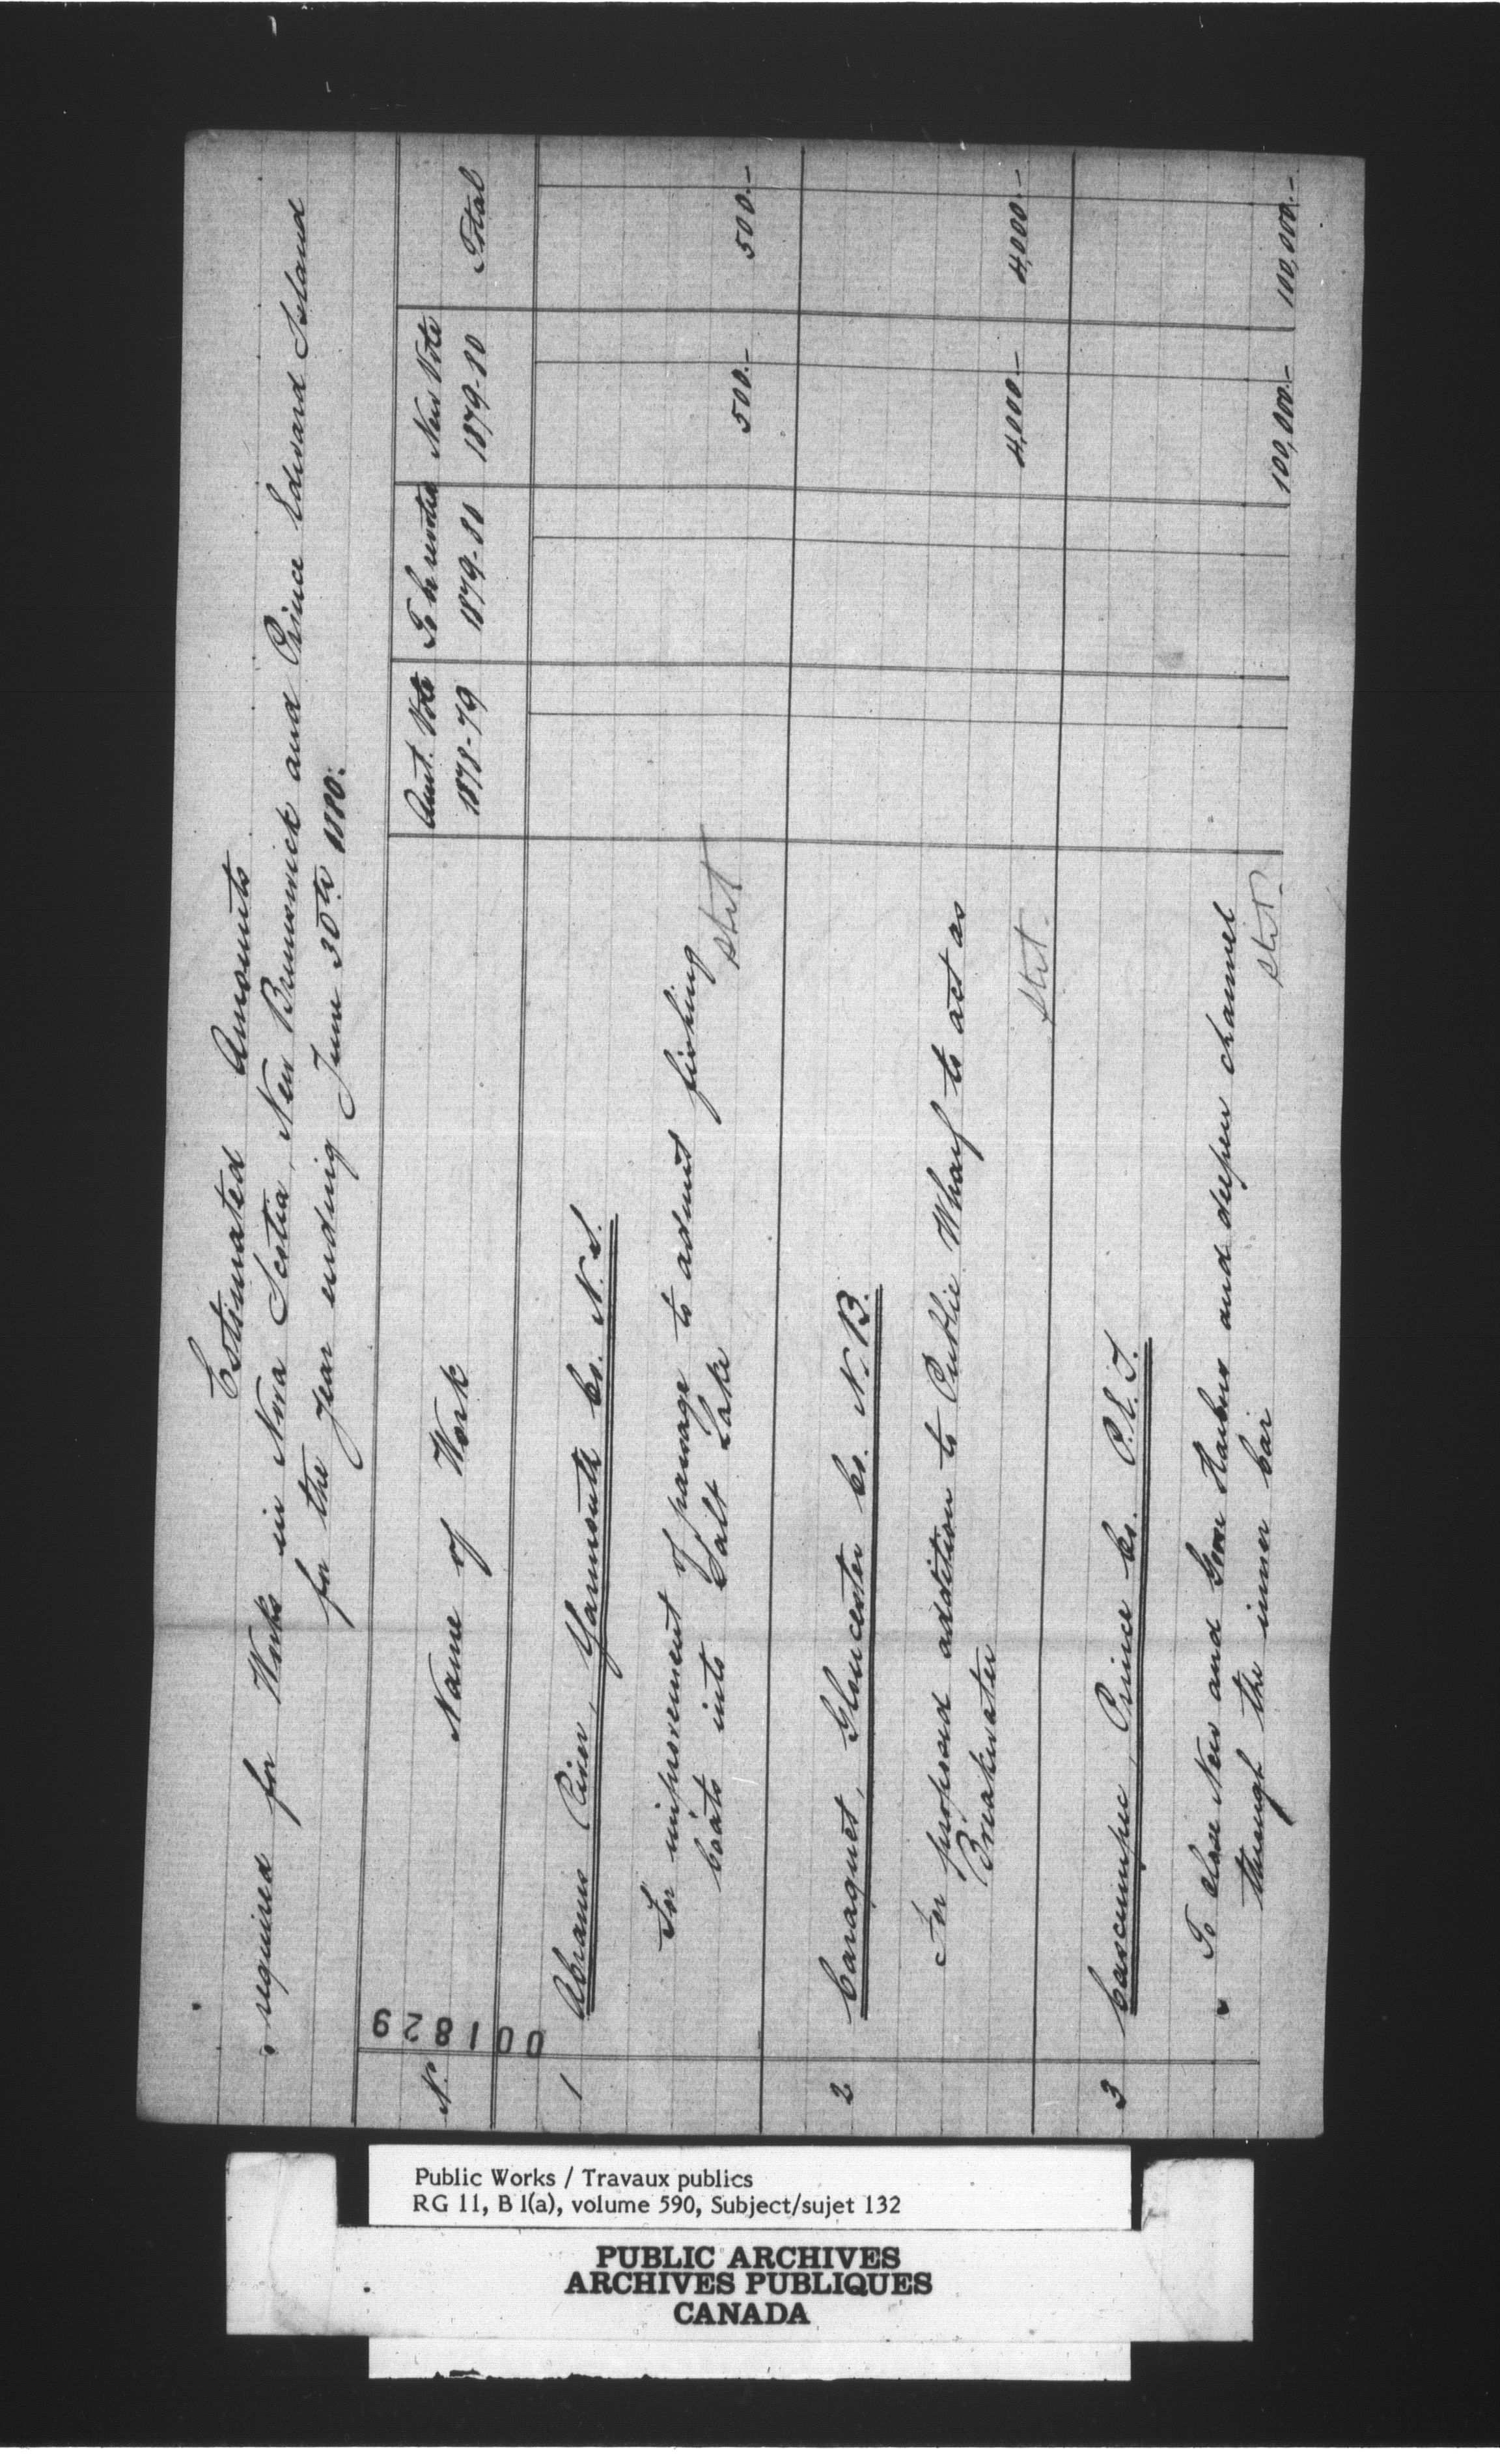 Estimated Amounts
required for Works in Nova Scotia, New Brunswick and Prince Edward Island
for the year ending June 30th 1880.
001829
No. Name of Work Amt. Vote 1878-79 To be revoted 1879-80 New Vote 1879-80 Total
1 Abrams River, Yarmouth Co. N.S.
For improvement of passage to admit fishing
boats into Salt Lake 500.- 500.-
stet
2 Caraquet, Gloucester Co. N.B.
For proposed addition to Public Wharf to act as
Breakwater 4,000.- 4,000.-
stet.
3 Cascumpec, Prince Co. P.E.I.
To close New and Goose Harbour and deepen channel
through the inner bar 100,000.- 100,000.-
stet.
Public Works / Travaux publics
RG 11, B 1(a), volume 590, Subject/sujet 132
PUBLIC ARCHIVES
ARCHIVES PUBLIQUES
CANADA